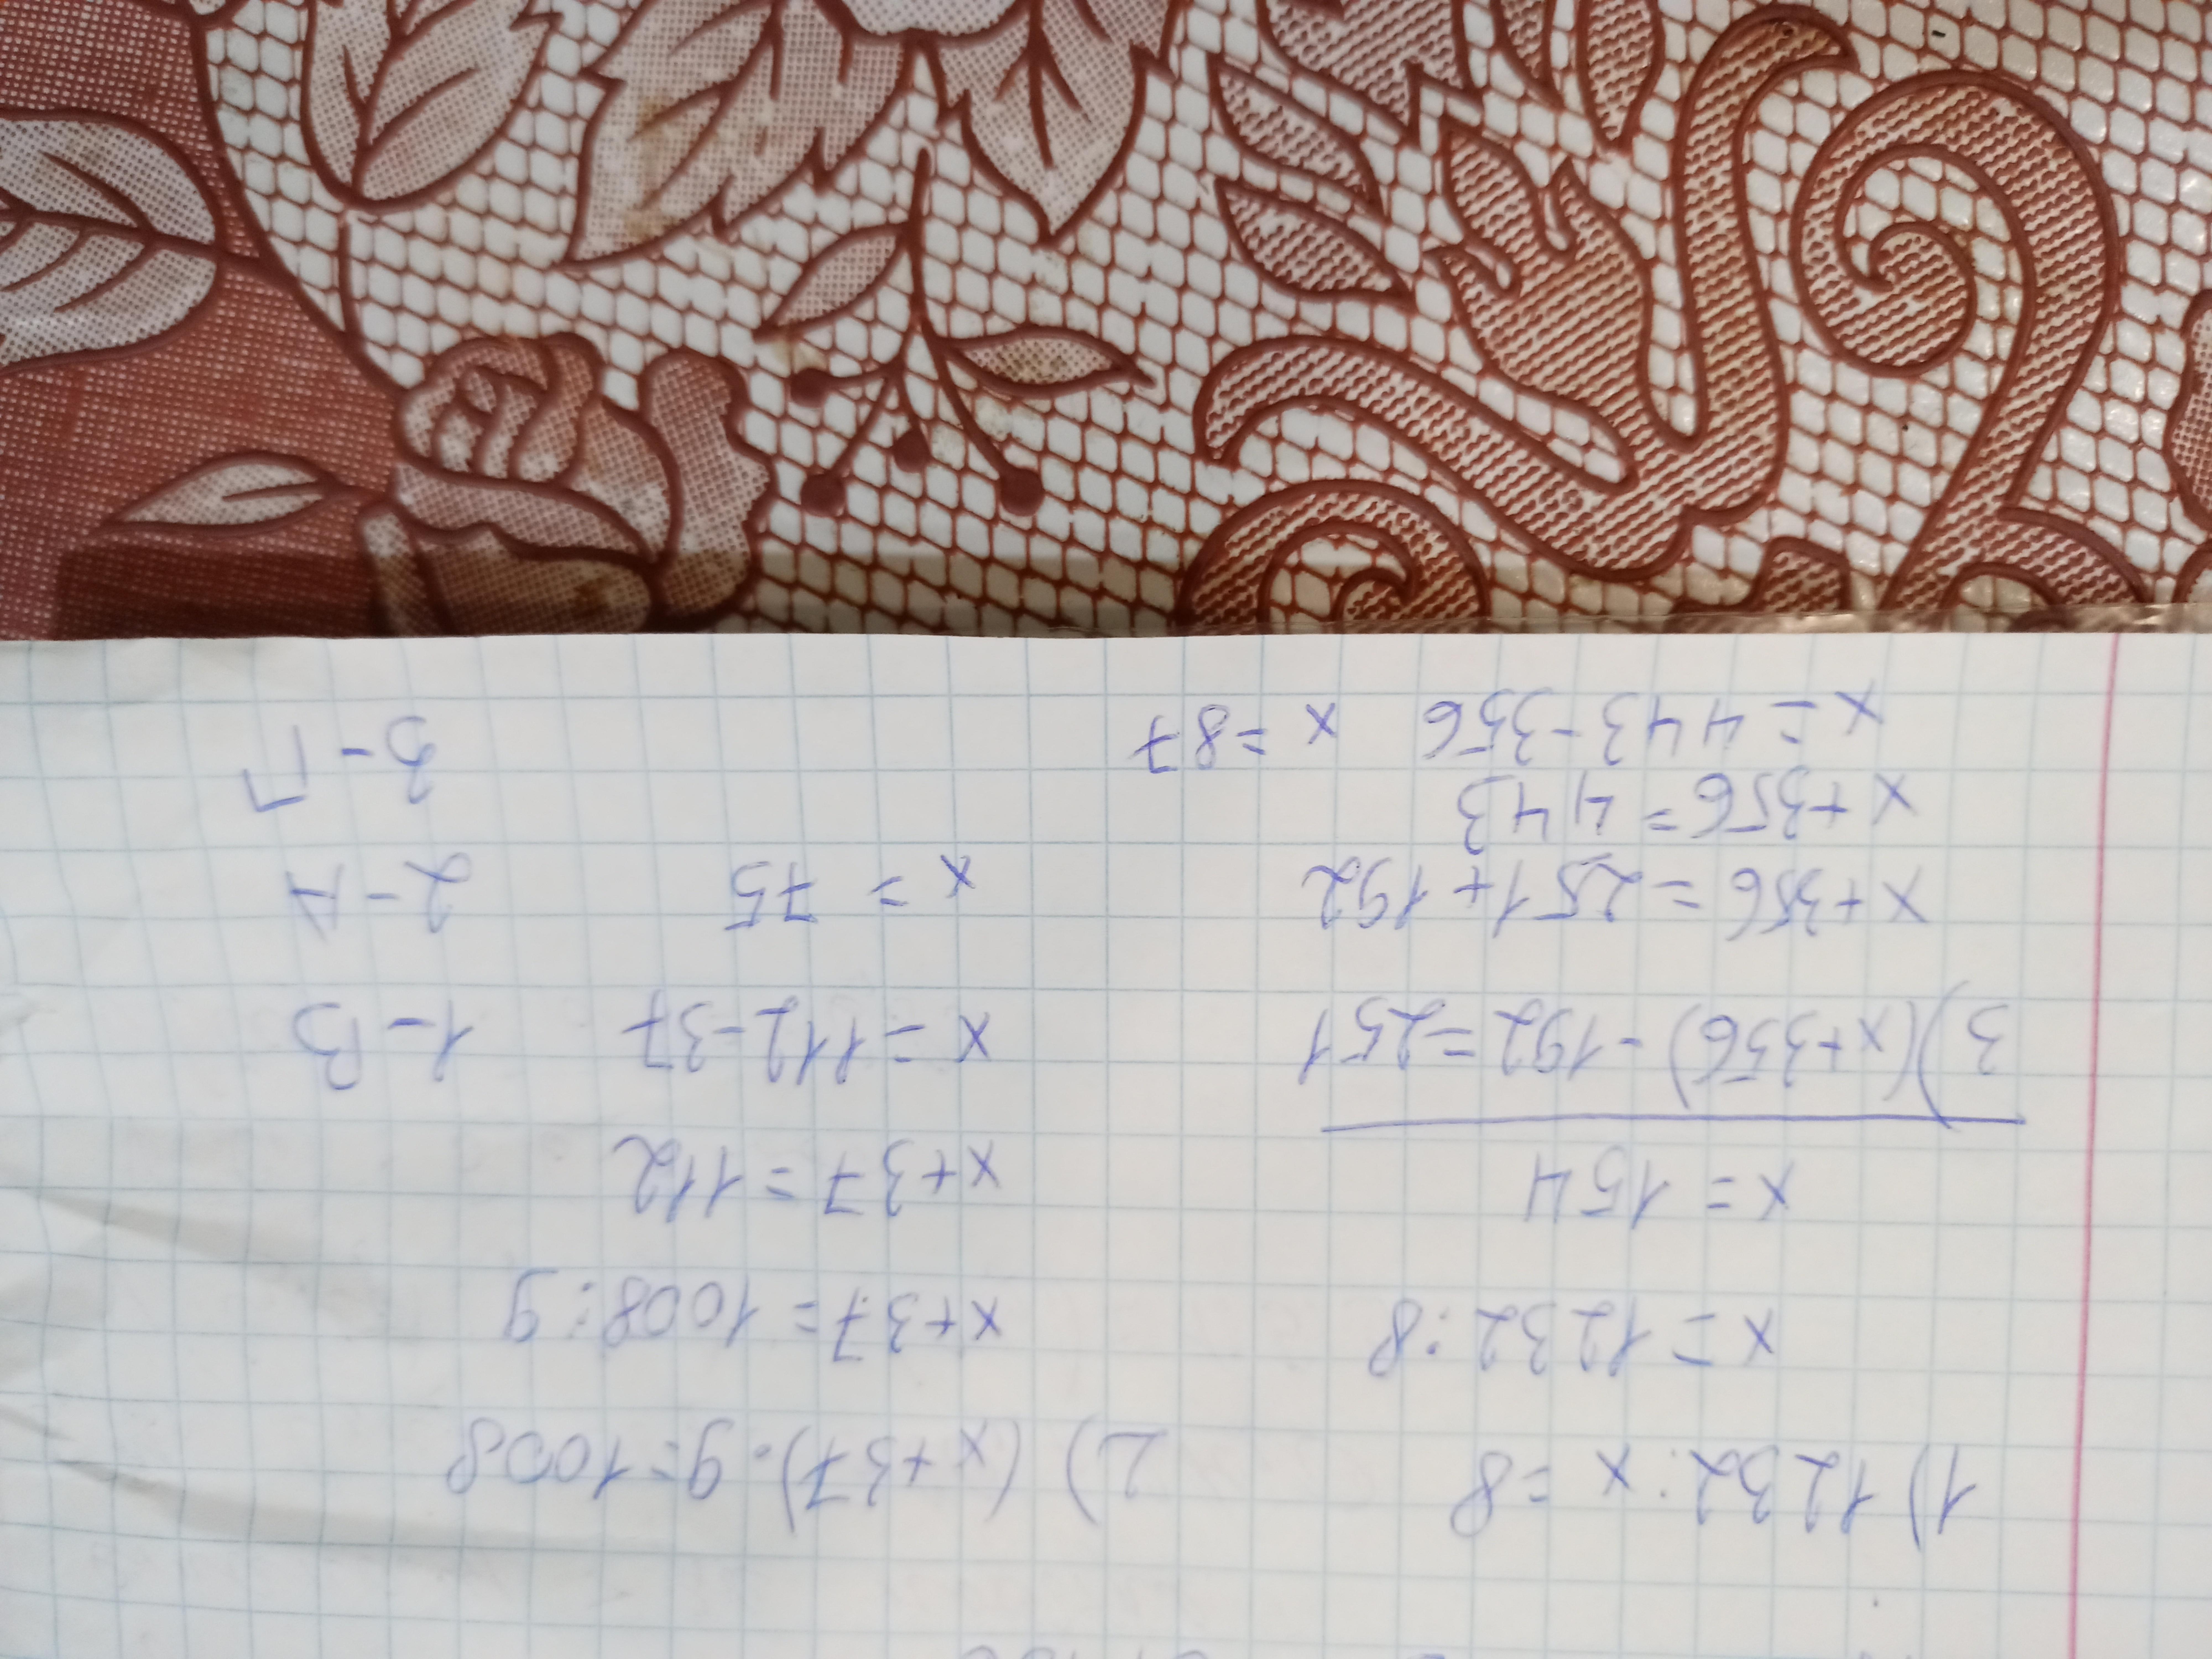 1) 1232 : x = 8
x = 1232 : 8
x = 154
2) (x+37) · 9 = 1008
x+37 = 1008 : 9
x+37 = 112
x = 112-37
x = 75
3) (x+356) - 192 = 251
x+356 = 251+192
x+356 = 443
x = 443-356 x = 87
1-В
2-А
3-Г